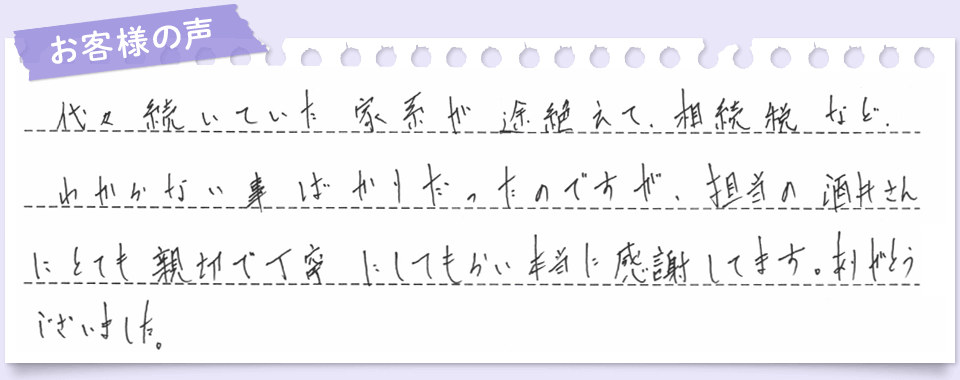 お客様の声
代々続いていた家系が途絶えて、相続税など、
わからない事ばかりだったのですが、担当の酒井さん
にとても親切で丁寧にしてもらい本当に感謝してます。ありがとう
ございました。